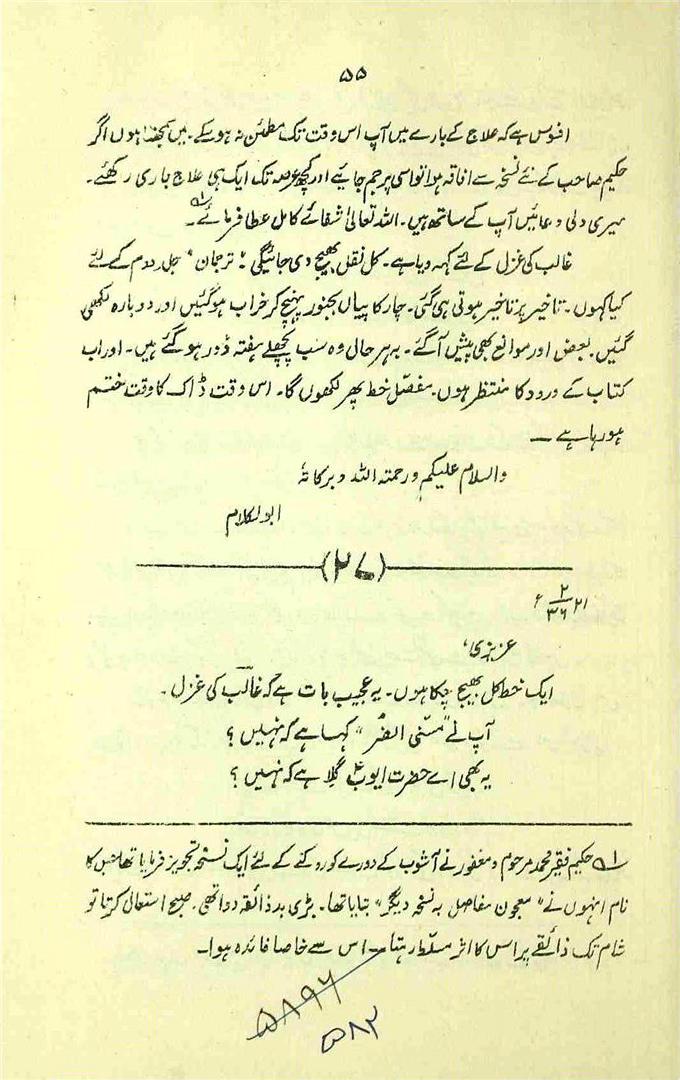 ۵۵
افوس ہے کہ علاج کے بارے میں آپ اس وقت تک مطمئن نہ ہوسکے۔ میں سمجھتا ہوں اگر
حکیم صاحب کے نئے نسخہ سے افاقہ ہوا تو اسی پر جم جائیے اور کچھ عرصہ تک ایک ہی علاج جاری رکھئے۔
میری دلی دعائیں آپ کے ساتھ ہیں۔ اللہ تعالیٰ شفائے کامل عطا فرمائے۔ ۱ے
غالب کی غزل کے لئے کہہ دیا ہے۔ کل نقل بھیج دی جائیگی! ترجمان" جلد دوم کے لئے
کیا کہوں۔ تاخیر پر تاخیر ہوتی ہی گئی۔ چار کاپیاں بجنور پہنچ کر خراب ہوگئیں اور دوبارہ لکھی
گئیں۔ بعض اور موانع بھی پیش آگئے۔ بہرحال وہ سب پچھلے ہفتہ دور ہوگئے ہیں۔ اور اب
کتاب کے ورود کا منتظر ہوں۔ مفصل خط پھر لکھوں گا۔ اس وقت ڈاک کا وقت ختم
ہورہا ہے ۔
والسلام علیکم ورحمتہ اللہ وبرکاتہٗ
ابوالکلام
(۲۷)
۲۱ ۲/۳۶ ء
عزیزی،
ایک خط کل بھیج چکا ہوں۔ یہ عجیب بات ہے کہ غالب کی غزل۔
آپ نے "مسّنی الضُر" کہا ہے کہ نہیں؟
یہ بھی اے حضرت ایوبؑ گِلا ہے کہ نہیں؟
۱ے حکیم فقیر محمد مرحوم و مغفور نے آشوب کے دورے کو روکنے کے لئے ایک نسخہ تجویز فرمایا تھا جس کا
نام انہوں نے "معجون مفاصل بہ نسخہ دیگر" بتایا تھا۔ بڑی بدذائقہ دوا تھی۔ صبح استعمال کرتا تو
شام تک ذائقے پر اس کا اثر مسلّط رہتا۔ اس سے خاصا فائدہ ہوا۔
۵۸۹۶
۵۸۲